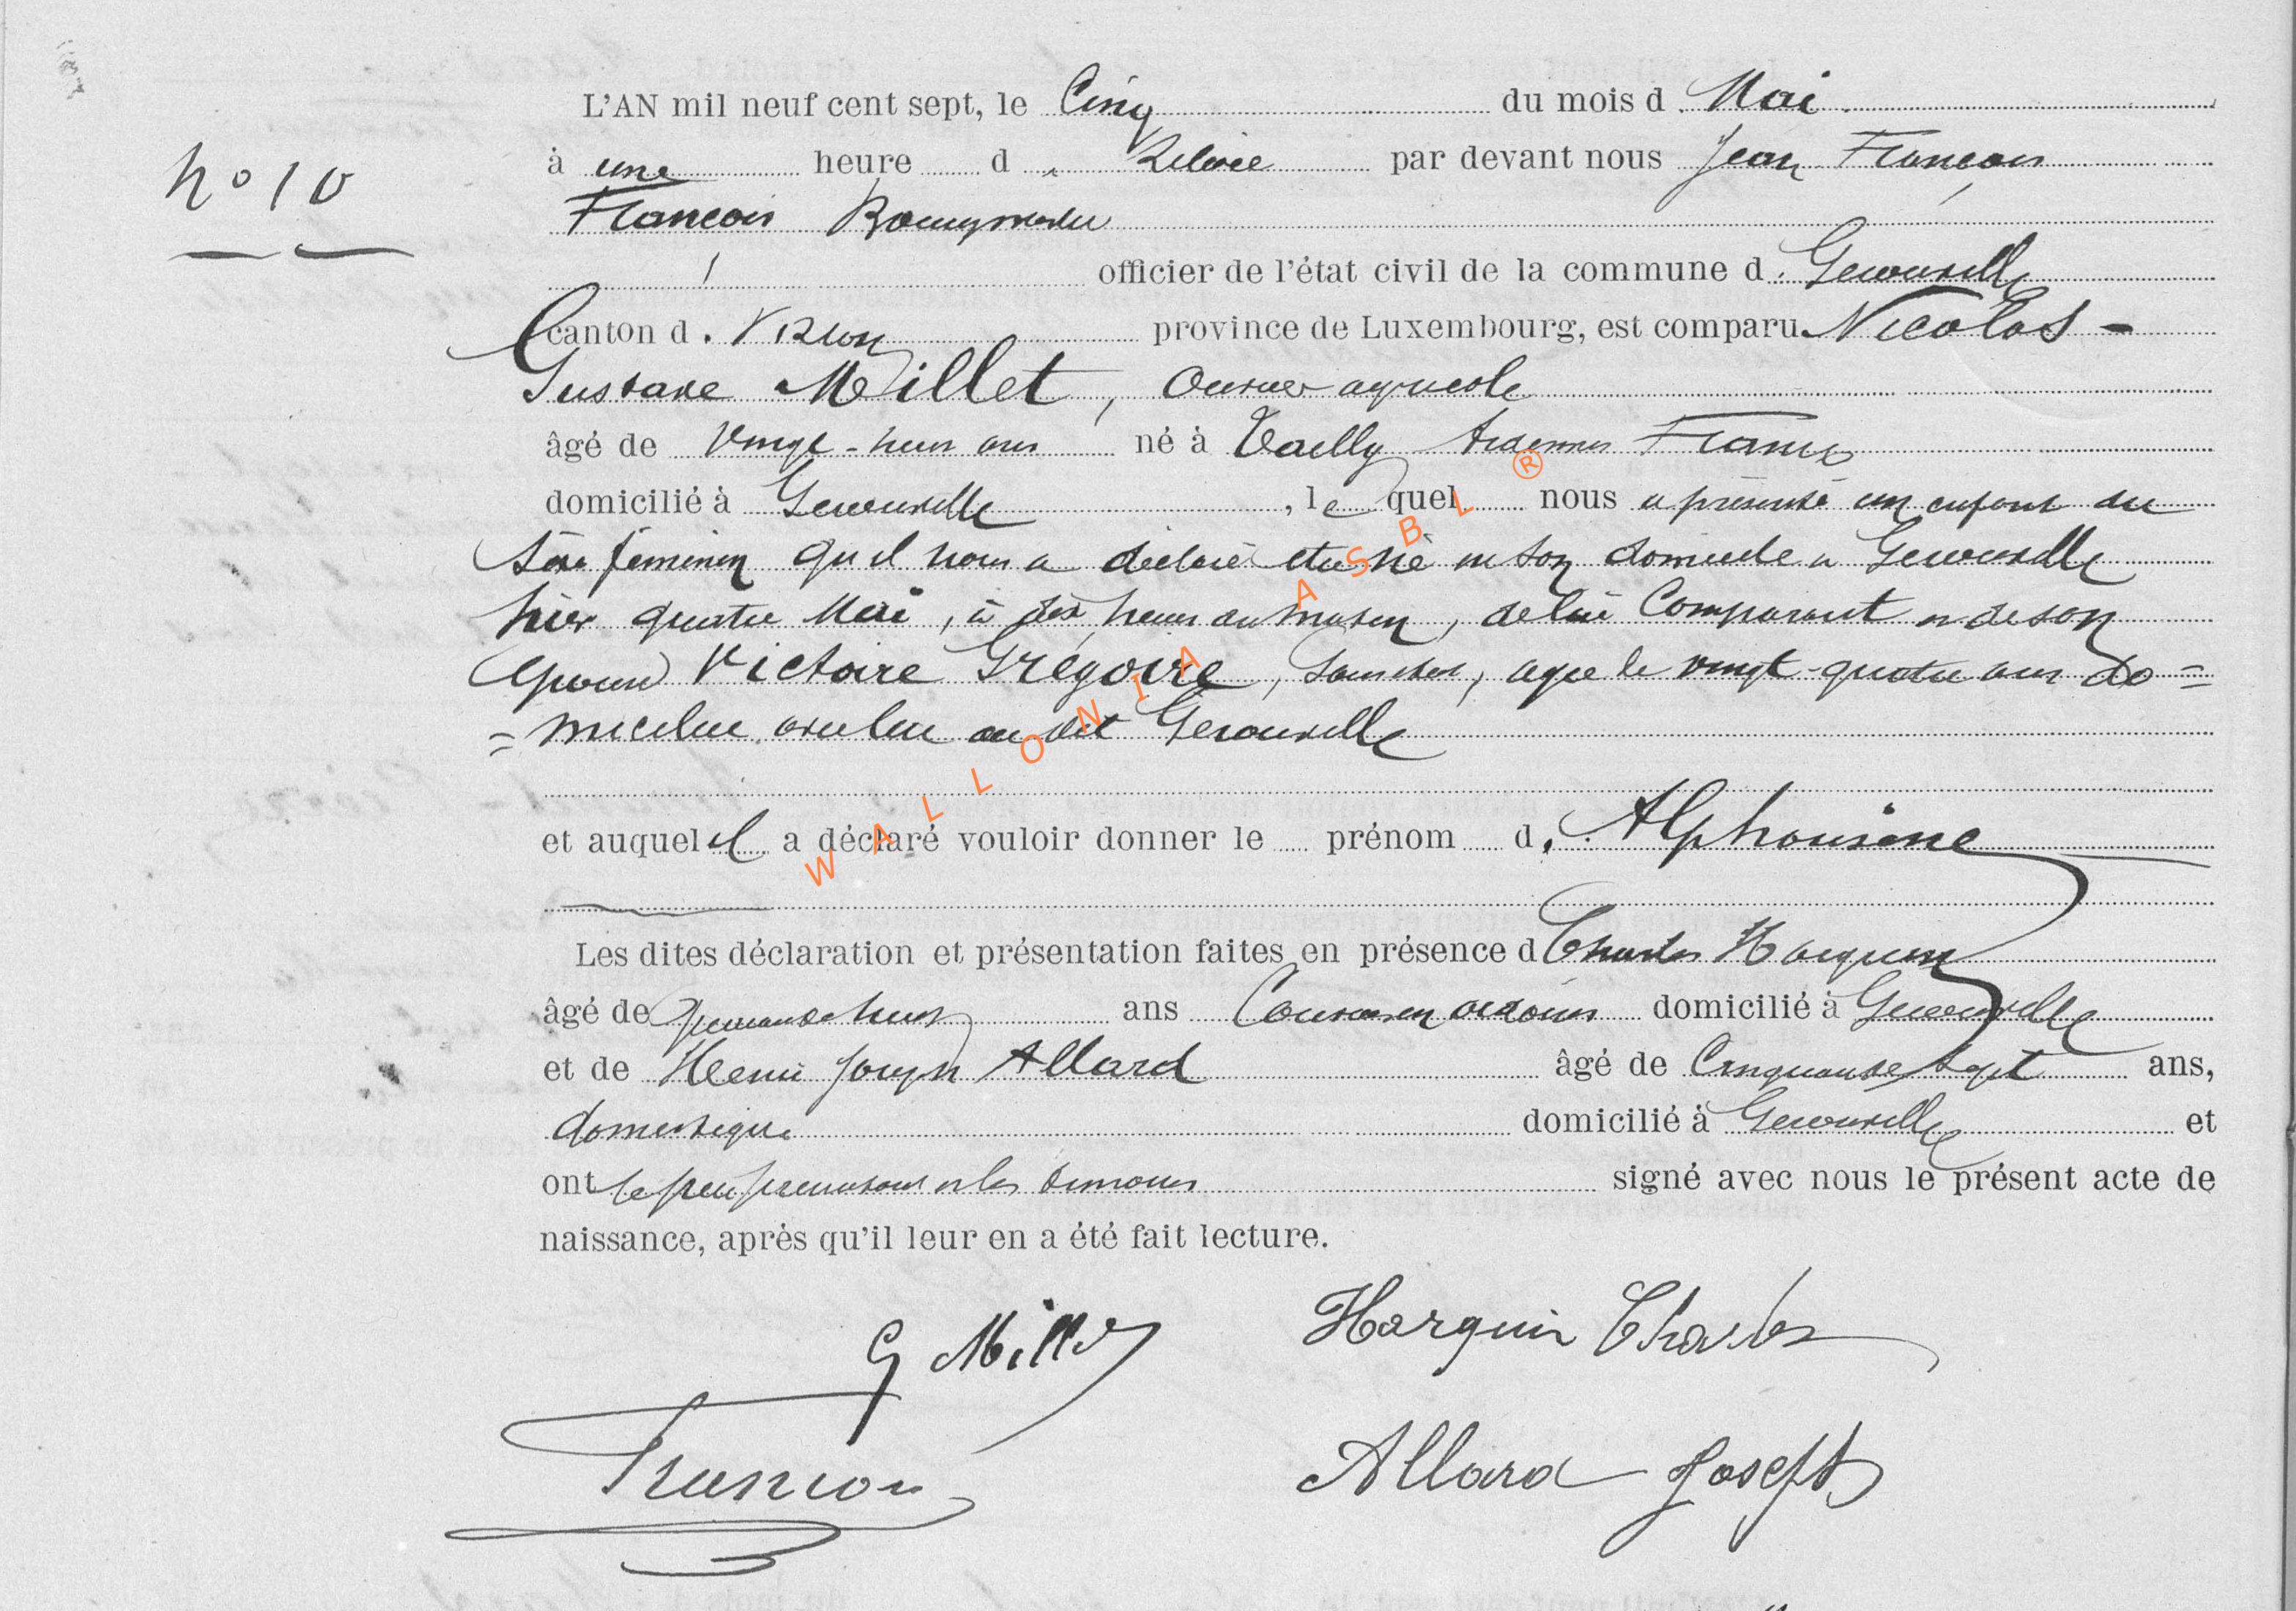 L'AN mil neuf cent sept, le Cinq du mois d Mai
N° 10
à une heure d Relevée par devant nous Jean François
François Bourgmestre
officier de l'état civil de la commune d. Gerouville
canton d. Virton province de Luxembourg, est comparu Nicolas -
Gustave Millet, Ouvrier agricole
âgé de Vingt-huit ans né à Tailly Ardennes France
domicilié à Gerouville, le quel nous a présenté un enfant du
sexe féminin qu'il nous a déclaré être né en son domicile a Gerouville
hier quatre Mai, à dix heures du matin, de lui Comparant et de son
épouse Victoire Grégoire, agée de vingt-quatre ans do=
=miciliée avec lui au dit Gerouville
et auquel il a déclaré vouloir donner le prénom d. Alphonsine
Les dites déclaration et présentation faites en présence d Charles Harquin
âgé de ans domicilié à Gerouville
et de Henri Joseph Allard âgé de Cinquante sept ans,
domestique domicilié à Gerouville et
ont le père présentant et les témoins signé avec nous le présent acte de
naissance, après qu'il leur en a été fait lecture.
G Millet Harquin Charles
François Allard Joseph
WALLONIA ASBL ®